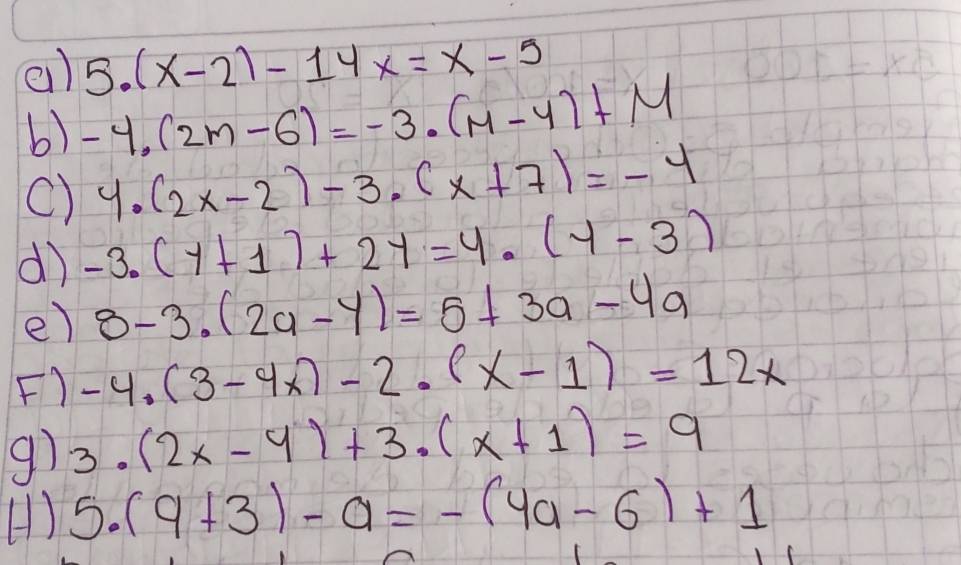 a) 5.(x-2)-14x=x-5
b) -4.(2m-6)=-3.(M-4)+M
C) 4.(2x-2)-3.(x+7)=-4
d) -3.(y+1)+2y=4.(y-3)
e) 8-3.(2a-4)=5+3a-4a
F) -4.(3-4x)-2.(x-1)=12x
g) 3.(2x-4)+3.(x+1)=9
H) 5.(a+3)-a=-(4a-6)+1